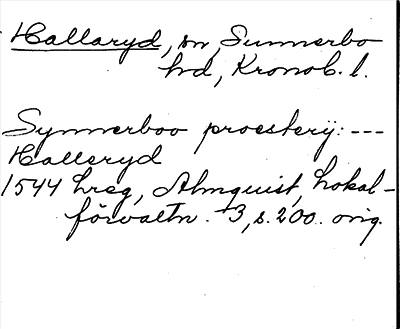 Hallaryd, sn, Sunnerbo
hd, Kronob. l.
Synnerboo proesterij: ---
Halleryd
1544 hreg, Almquist, Lokal-
förvaltn. 3, s. 200. orig.